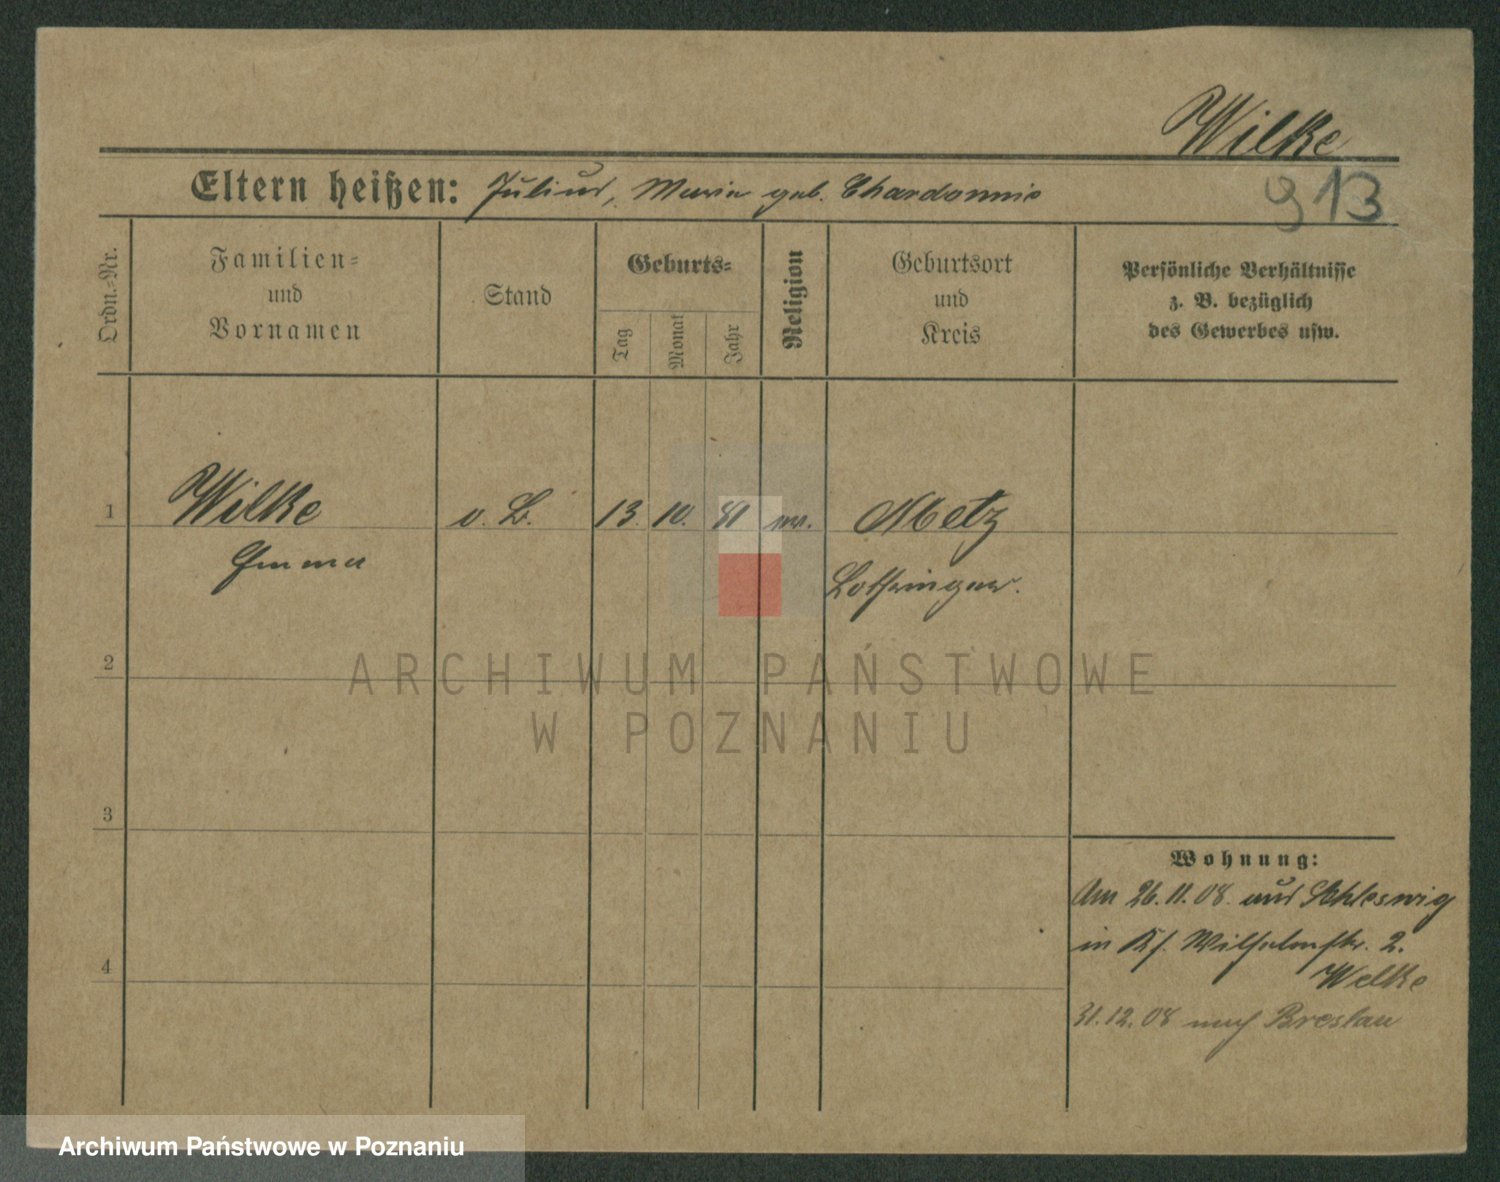 Wilke
Eltern heißen: Julius, Maria geb. Chardonnis
913
Ordn.-Nr.
Familien-
und
Vornamen
Stand
Geburts-
Tag
Monat
Jahr
Religion
Geburtsort
und
Kreis
Persönliche Verhältnisse
z. B. bezüglich
des Gewerbes usw.
1
Wilke
o. B.
13.
10.
81
ev.
Metz
Emma
Lothringen.
2
ARCHIWUM PAŃSTWOWE
W POZNANIU
3
Wohnung:
Am 26.11.08. aus Schleswig
in Wilhelmstr. 2.
4
31.12.08 nach Breslau
Archiwum Państwowe w Poznaniu